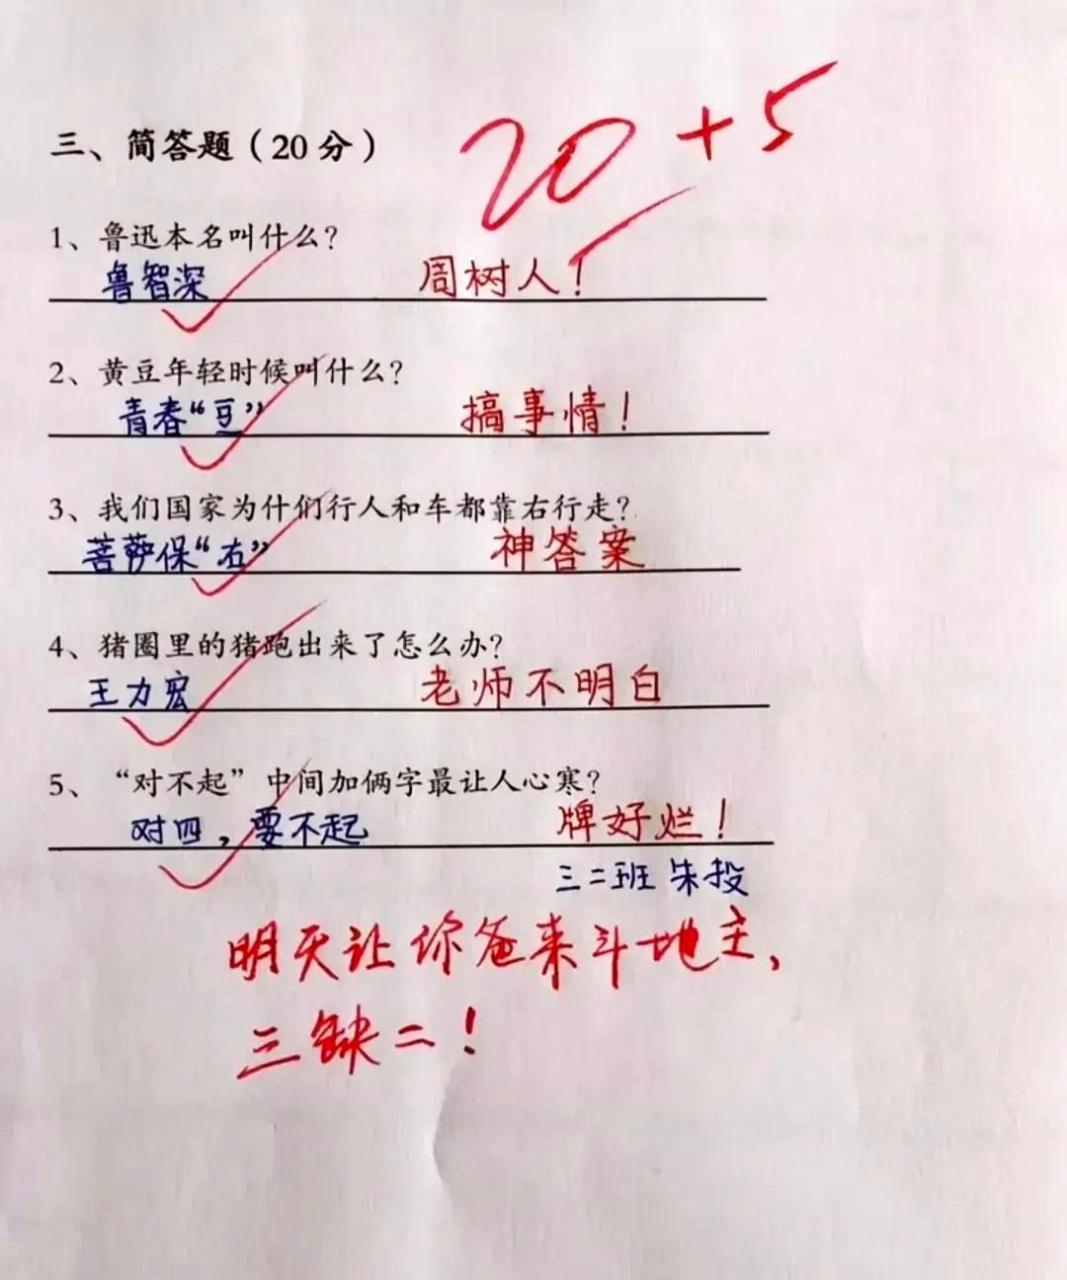 三、简答题（20分）
20+5
1、鲁迅本名叫什么？
鲁智深 周树人！
2、黄豆年轻时候叫什么？
青春“豆” 搞事情！
3、我们国家为什们行人和车都靠右行走？
菩萨保“右” 神答案
4、猪圈里的猪跑出来了怎么办？
王力宏 老师不明白
5、“对不起”中间加俩字最让人心寒？
对四，要不起 牌好烂！
三二班 朱投
明天让你爸来斗地主，
三缺二！